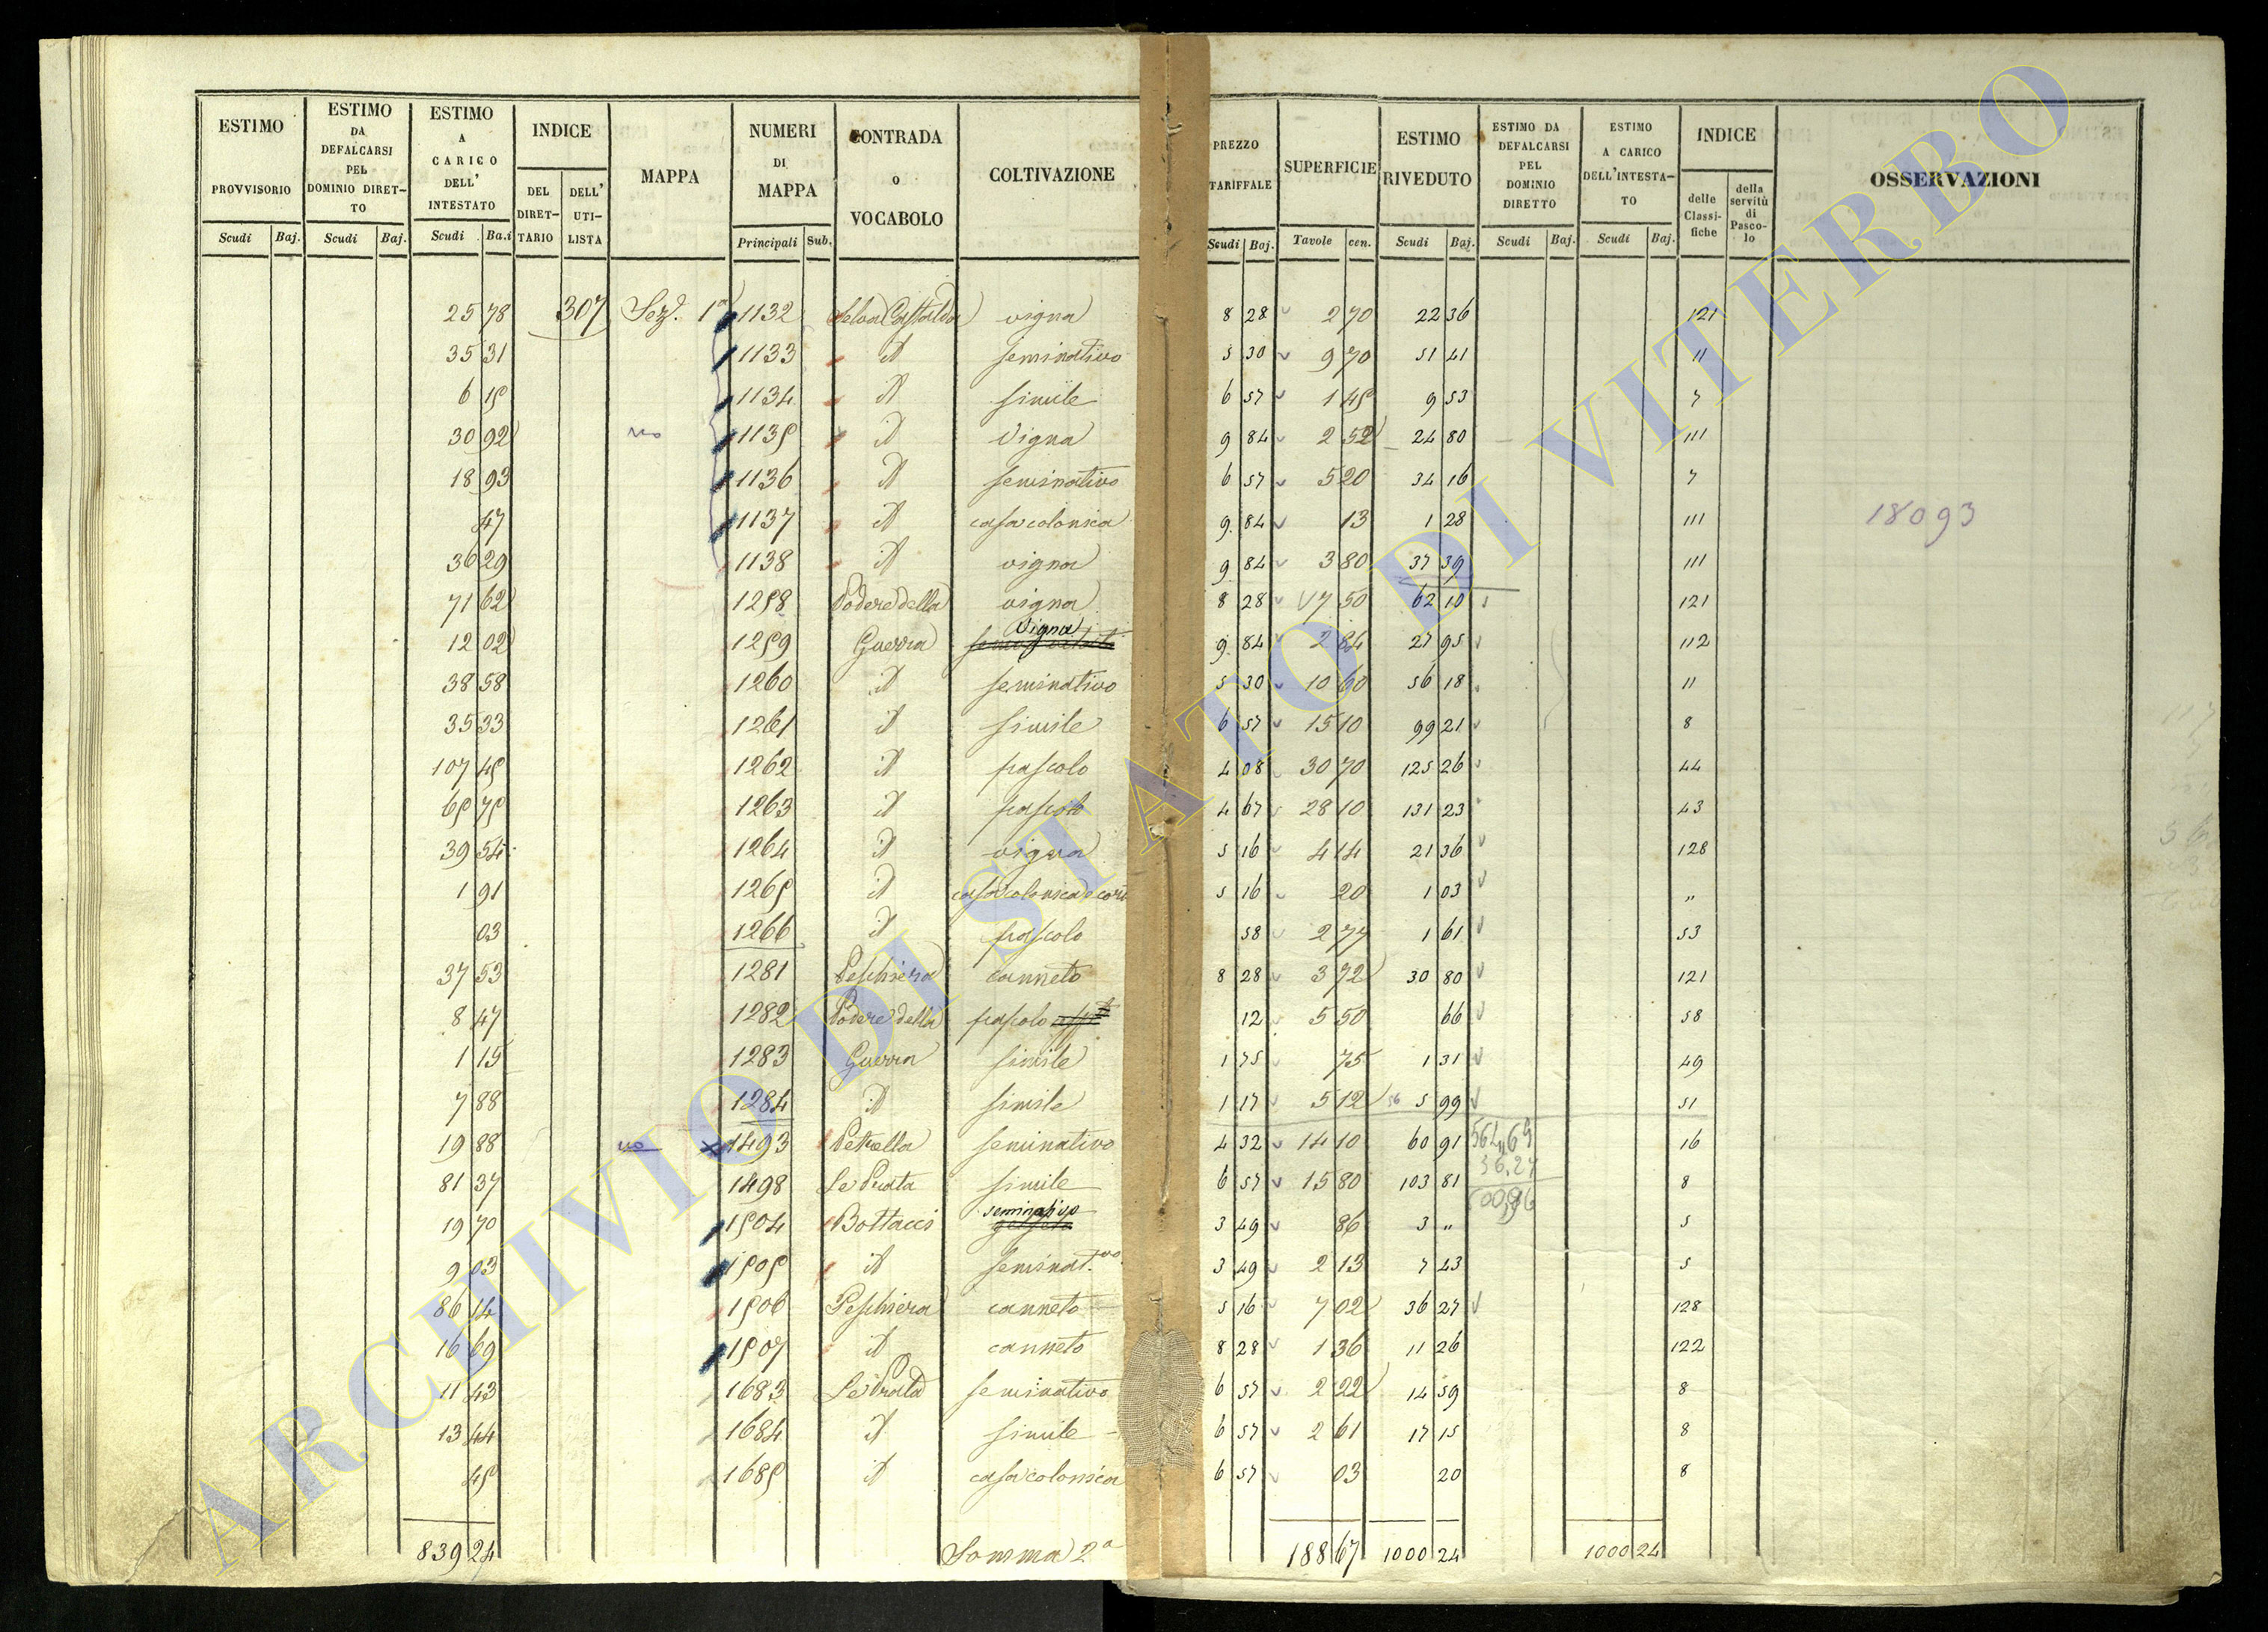 ESTIMO PROVVISORIO | ESTIMO DA DEFALCARSI PEL DOMINIO DIRETTO | ESTIMO A CARICO DELL' INTESTATO | INDICE | MAPPA | NUMERI DI MAPPA | CONTRADA O VOCABOLO | COLTIVAZIONE | PREZZO TARIFFALE | SUPERFICIE | ESTIMO RIVEDUTO | ESTIMO DA DEFALCARSI PEL DOMINIO DIRETTO | ESTIMO A CARICO DELL'INTESTATO | INDICE | OSSERVAZIONI
DEL DIRETTARIO | DELL' UTILISTA | delle Classifiche | della servitù di Pascolo
Scudi | Baj. | Scudi | Baj. | Scudi | Ba.i | Principali | Sub. | Scudi | Baj. | Tavole | cen. | Scudi | Baj. | Scudi | Baj. | Scudi | Baj.
25 78 | 307 | Sez. 1a | 1132 | Selva Castalda | vigna | 8 28 | 2 70 | 22 36 | 121
35 31 | 1133 | id | seminativo | 5 30 | 9 70 | 51 41 | 11
6 15 | 1134 | id | simile | 6 57 | 1 45 | 9 53 | 7
30 92 | no | 1135 | id | Vigna | 9 84 | 2 52 | 24 80 | 111
18 93 | 1136 | id | seminativo | 6 57 | 5 20 | 34 16 | 7
47 | 1137 | id | casa colonica | 9 84 | 13 | 1 28 | 111 | 18093
36 29 | 1138 | id | vigna | 9 84 | 3 80 | 37 39 | 111
71 62 | 1258 | Podere della | vigna | 8 28 | 7 50 | 62 10 | 121
12 02 | 1259 | Guerra | Vigna | 9 84 | 2 84 | 27 95 | 112
38 58 | 1260 | id | seminativo | 5 30 | 10 60 | 56 18 | 11
35 33 | 1261 | id | simile | 6 57 | 15 10 | 99 21 | 8
107 45 | 1262 | id | pascolo | 4 08 | 30 70 | 125 26 | 44
65 75 | 1263 | id | pascolo | 4 67 | 28 10 | 131 23 | 43
39 54 | 1264 | id | vigna | 5 16 | 4 14 | 21 36 | 128
1 91 | 1265 | id | casa colonica e corte | 5 16 | 20 | 1 03 | "
03 | 1266 | id | pascolo | 58 | 2 77 | 1 61 | 53
37 53 | 1281 | Peschiera | canneto | 8 28 | 3 72 | 30 80 | 121
8 47 | 1282 | Podere della | pascolo | 12 | 5 50 | 66 | 58
1 15 | 1283 | Guerra | simile | 1 75 | 75 | 1 31 | 49
7 88 | 1284 | id | simile | 1 17 | 5 12 | 5 99 | 51
19 88 | no | 1493 | Petrella | seminativo | 4 32 | 14 10 | 60 91 | 564,69 | 16
36.27
81 37 | 1498 | Le Prata | simile | 6 57 | 15 80 | 103 81 | 8
19 70 | 1504 | Bottacci | seminativo | 3 49 | 86 | 3 " | 5
9 03 | 1505 | id | seminat.vo | 3 49 | 2 13 | 7 43 | 5
86 14 | 1506 | Peschiera | canneto | 5 16 | 7 02 | 36 27 | 128
16 69 | 1507 | id | canneto | 8 28 | 1 36 | 11 26 | 122
11 43 | 1683 | Le Prata | seminativo | 6 57 | 2 22 | 14 59 | 8
13 44 | 1684 | id | simile | 6 57 | 2 61 | 17 15 | 8
45 | 1685 | id | casa colonica | 6 57 | 03 | 20 | 8
839 24 | Somma 2a | 188 67 | 1000 24 | 1000 24
ARCHIVIO DI STATO DI VITERBO